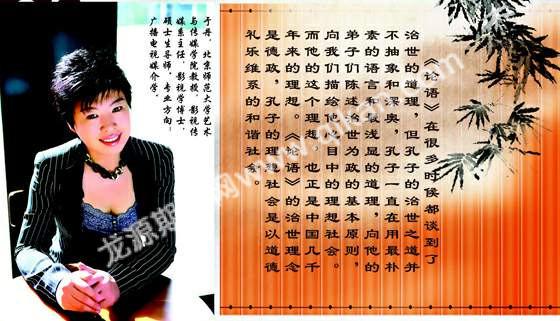 《论语》在很多时候都谈到了
治世的道理,但孔子的治世之道并
不抽象和深奥,孔子一直在用最朴
素的语言和最浅显的道理,向他的
弟子们陈述治世为政的基本原则,
向我们描绘他心目中的理想社会。
而他的这个理想,也正是中国几千
年来的理想。《论语》的治世理念
是德政,孔子的理想社会是以道德
礼乐维系的和谐社会。
于丹,北京师范大学艺术
与传媒学院教授,影视传
媒系主任,影视学博士,
硕士生导师,专业方向:
广播电视媒介学。
龙源期刊网